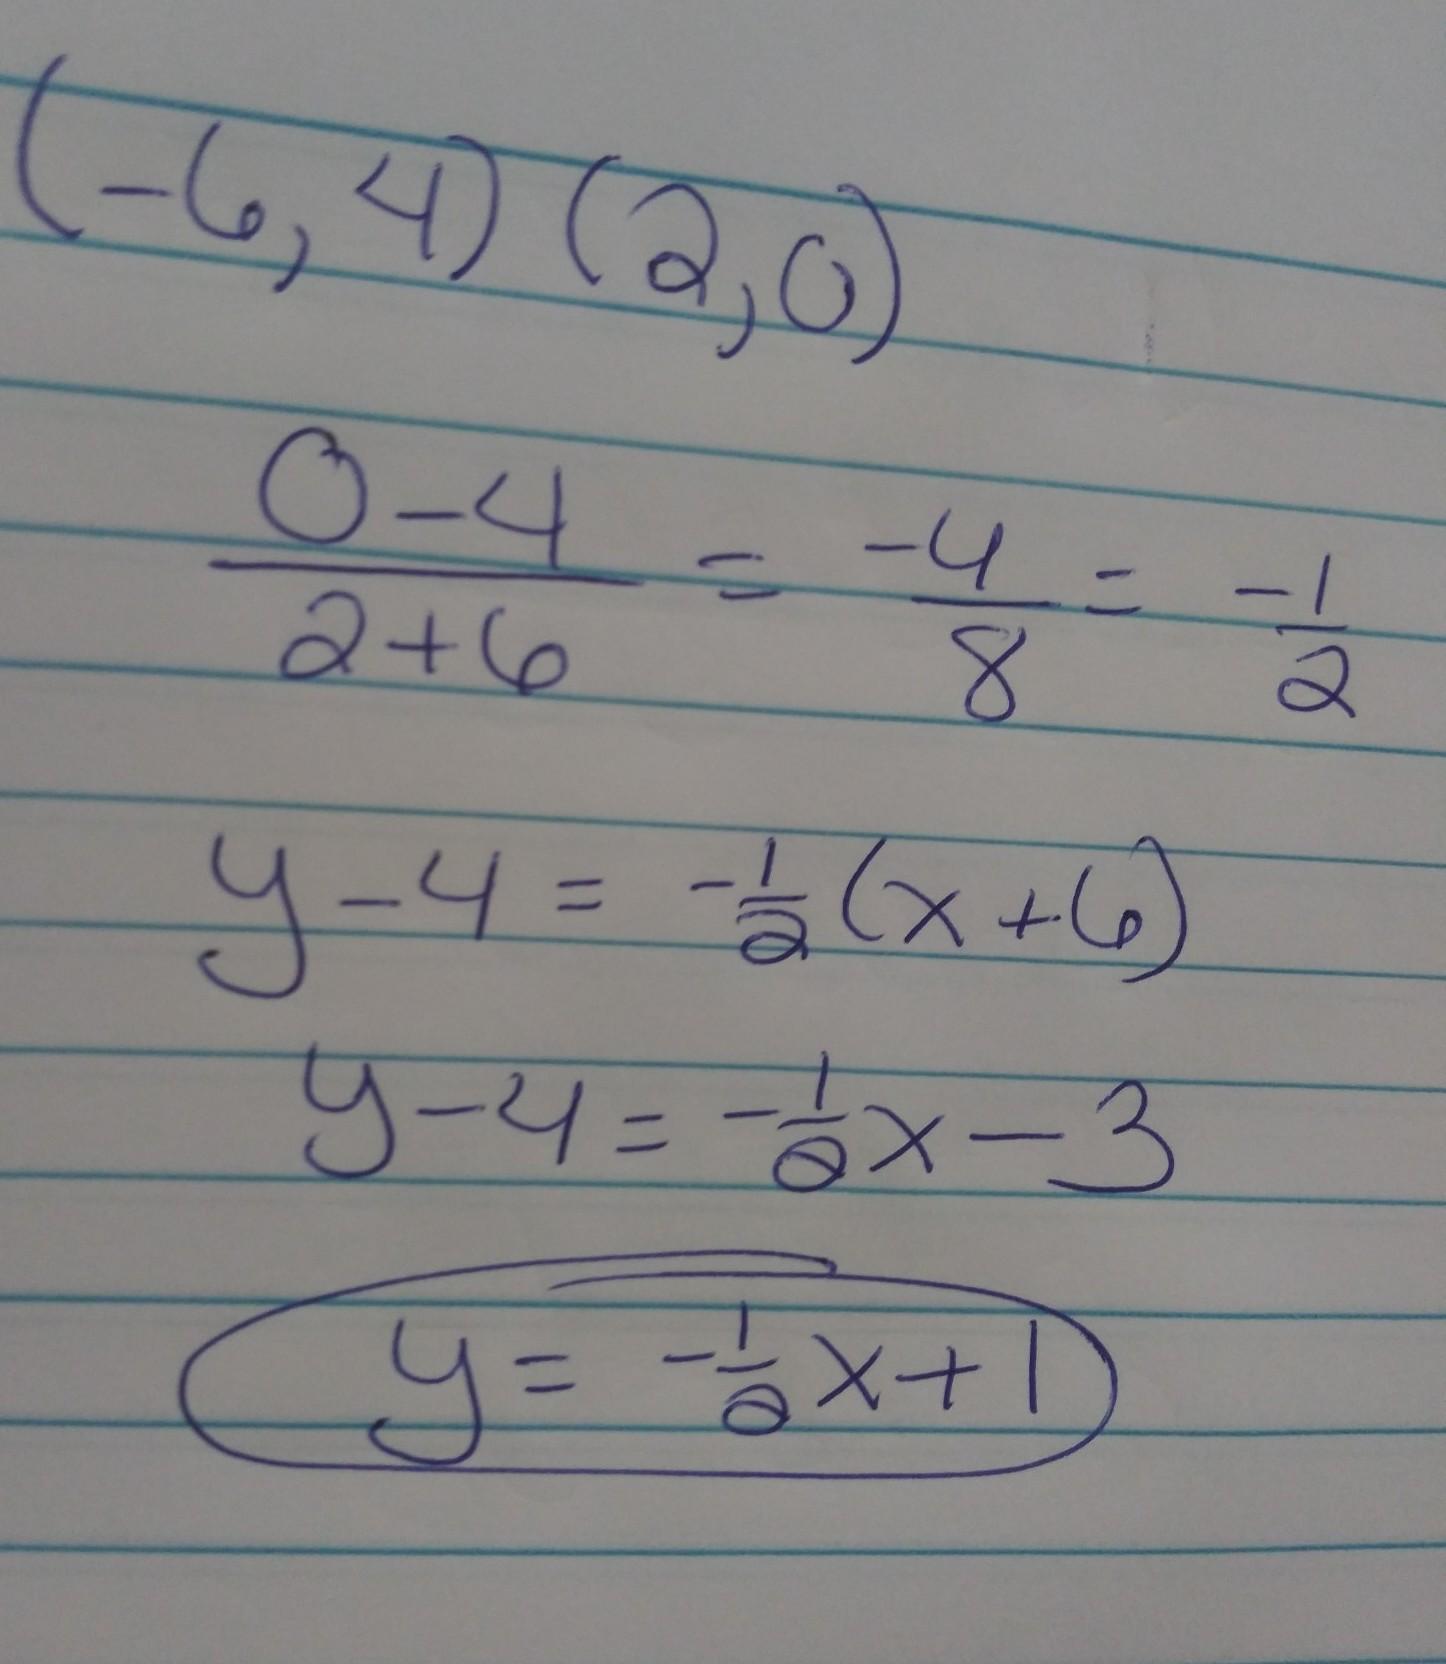 (-6, 4) (2, 0)
0-4/2+6 = -4/8 = -1/2
y-4 = -1/2(x+6)
y-4 = -1/2x-3
y = -1/2x+1